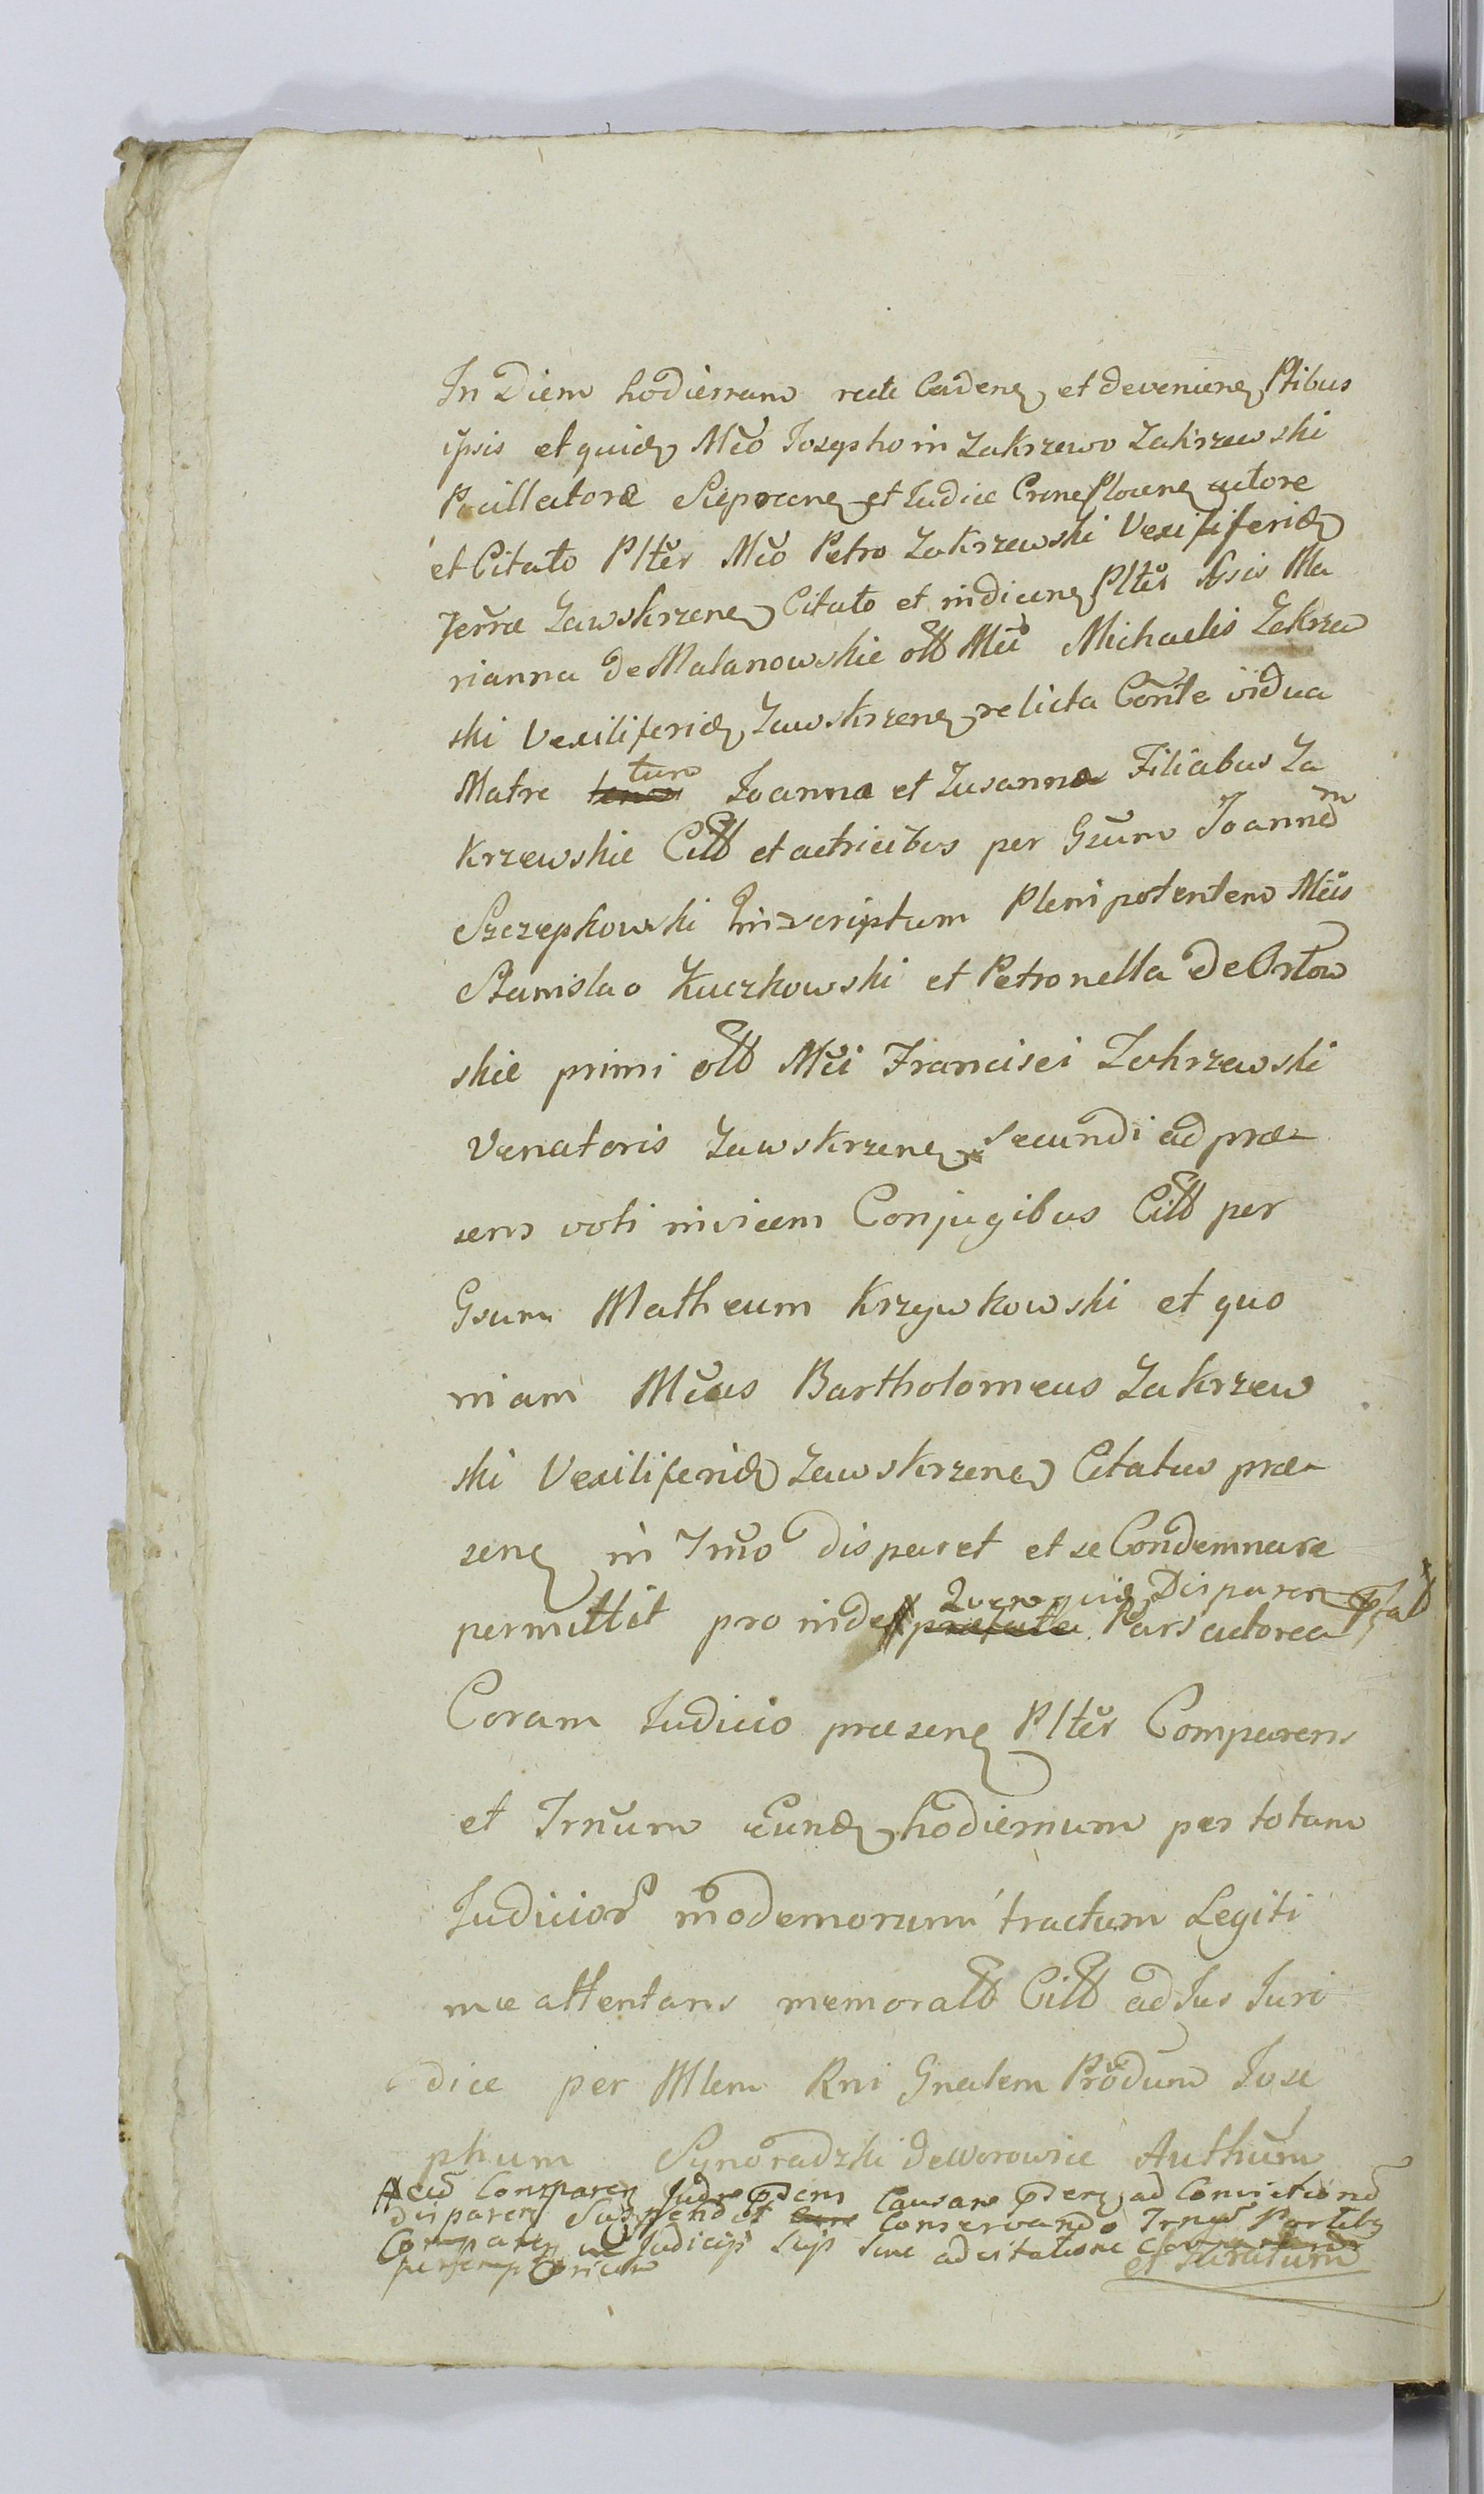 In Diem hodiernam recte Cadenȩ et devenienȩ Ptibus
ipsis et quidȩ Mco Josepho in Zakrzewo Zakrzewski
Pocillatore Sieprcenȩ et Judice CrensPlocenȩ actore
et Citato Plter Mco Petro Zakrzewski Vexiliferidȩ
Terræ Zawskrzenȩ Citato et indicenȩ Plter Gsis Ma
rianna de Malanowskie olb Mci Michaelis Zakrzew
ski Vexiliferidȩ Zawskrzenȩ relicta Conte vidua
Matre tum Joanna et Zusanna Filiabus Za
krzewskie Citb et actricibus per Gsum Joannem
Szczepkowski Inscriptum Plenipotentem Mcis
Stanislao Kuczkowski et Petronella De Orłow
skie primi olb Mci Francisci Zakrzewski
Venatoris Zawskrzenȩ secundi ad præ
sens voti invicem Conjugibus Citb per
Gsum Matheum Krzywkowski et quo
niam Mcus Bartholomeus Zakrzew
ski Vexiliferidȩ Zawskrzenȩ Citatus præ
senȩ in Trno disparet et se Condemnare
permittit pro inde præfata Pars actorea
Coram Judicio præsenȩ Plter Comparens
et Trnum Eundȩ hodiernum per totam
Judicior modernorum tractum Legiti
me attentans memoratb Citb ad Jus Juri
dice per Mlem Rni Gnalem Prōdum Jose
phum Synoradzki de Worowice Authum
Comparenȩ Judm præsens Causam præsenȩ ad Convictionem
disparenȩ Suspendit Conservando Trnum Partibȩ
Comparenȩ in Judicijs suis sine adcitatione
peremptorium et Juratum